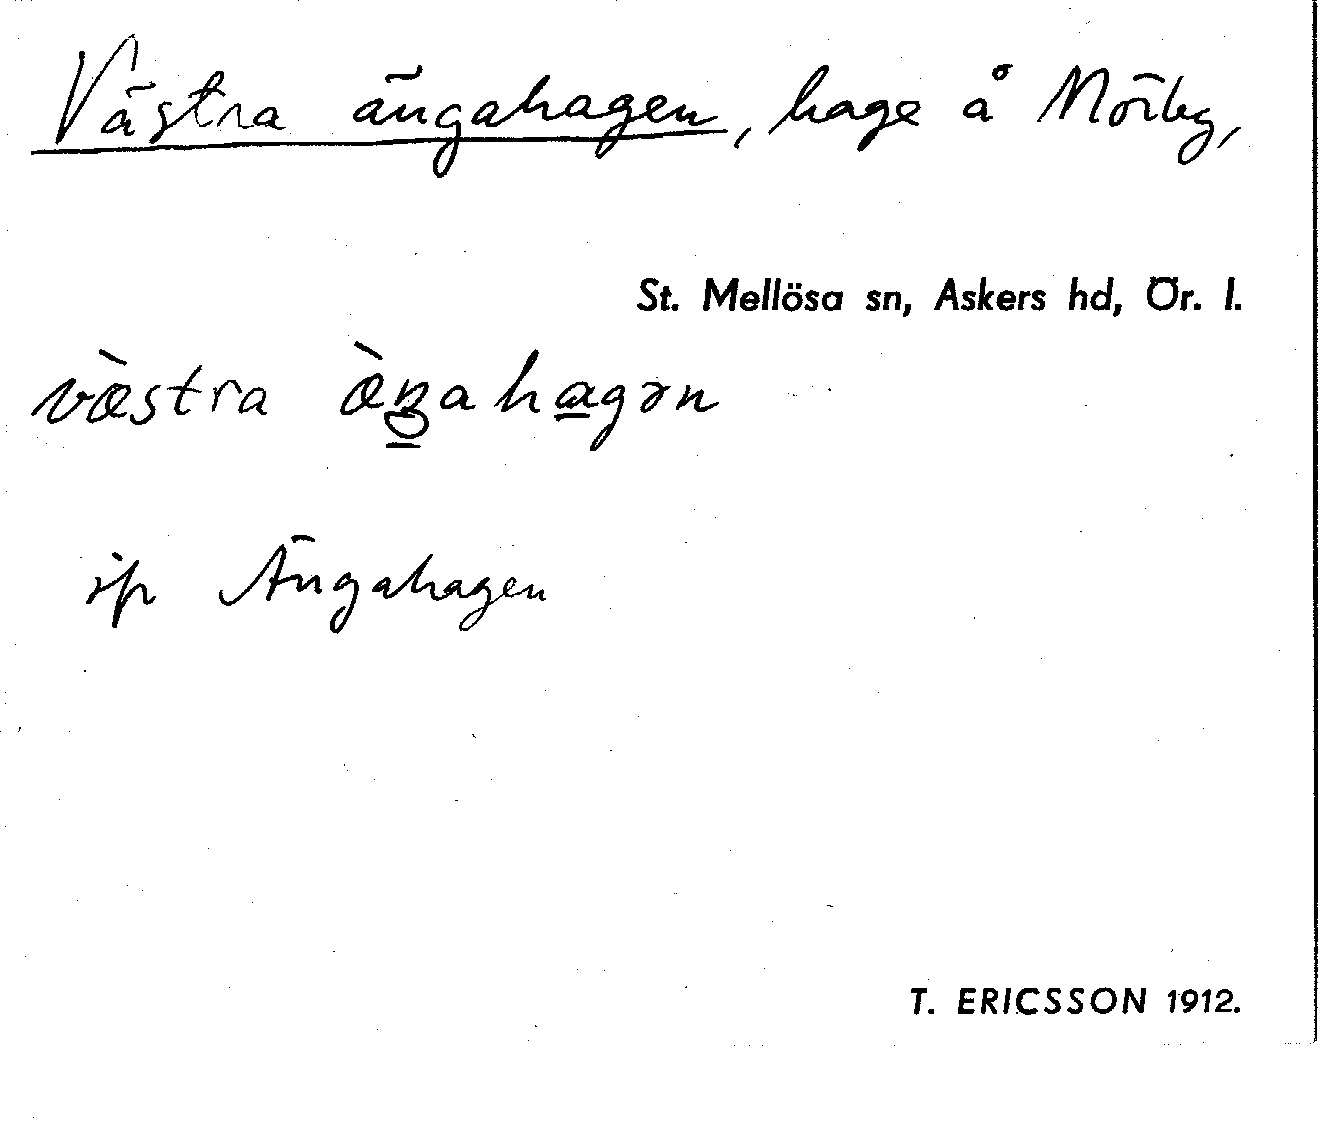 Västra ängahagen, hage å Mörby,
St. Mellösa sn, Askers hd, Ör. l.
væ̀stra æ̀ŋahagən
ip Ängahagen
T. ERICSSON 1912.